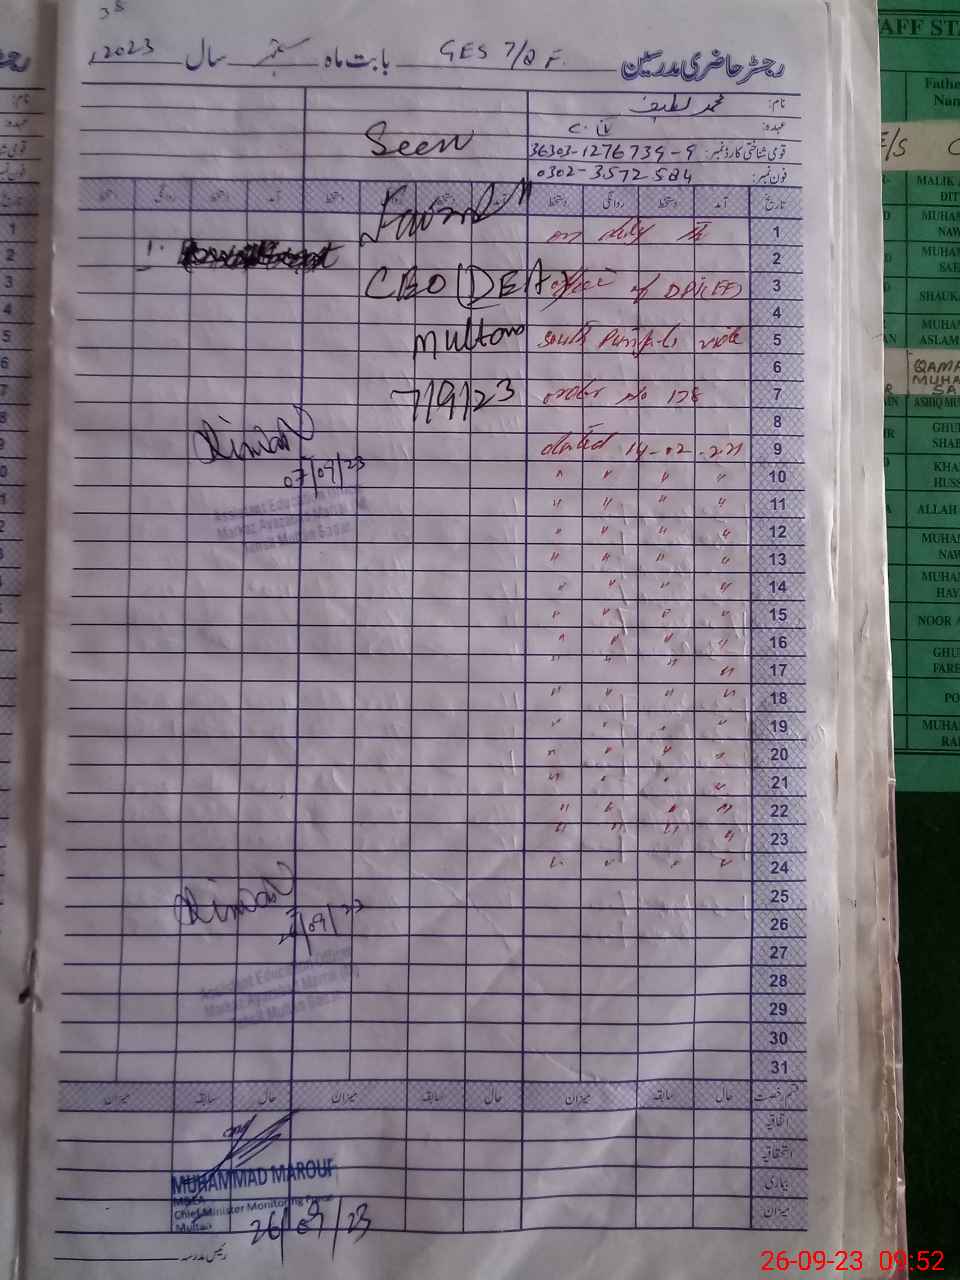 رجسٹر حاضری مدرسین GES 7/2 F. بابت ماہ ستمبر سال 2023ء
نام: محمد لطیف
عہدہ: C. IV
قومی شناختی کارڈ نمبر: 36303-1276739-9
فون نمبر: 0302-3572584
Seen
تاریخ آمد دستخط روانگی دستخط
CEO (DEA)
Multan
7/9/23
1 on duty in
2
3 office of DPI(EE)
4
5 South Punjab vide
6
7 order No 178
8
9 dated 14-02-22
10 " " " "
11 " " " "
12 " " " "
13 " " " "
14 " " " "
15 " " " "
16 " " "
17 " " " "
18 " " " "
19 " " " "
20 " " " "
21 " " " "
22 " " " "
23 " " " "
24 " " " "
25
26
27
28
29
30
31
07/09/23
Assistant Education Officer
/09/23
Assistant Education Officer
قسم رخصت حال سابقہ میزان حال سابقہ میزان حال سابقہ میزان
اتفاقیہ
استحقاقیہ
بیماری
میزان
MUHAMMAD MAROUF
MOEA
Chief Minister Monitoring Force
Multan
26/09/23
رئیس مدرسہ
AFF ST
Fathe
Nam
E/S
MALIK
DIT
MUHAM
NAW
MUHAM
SAE
SHAUKA
MUHAM
ASLAM
QAMA
MUHA
SA
ASHIQ MU
GHU
SHAB
KHA
HUSS
ALLAH
MUHAM
NAW
MUHAM
HAY
NOOR A
GHU
FARE
PO
MUHA
RA
26-09-23 09:52